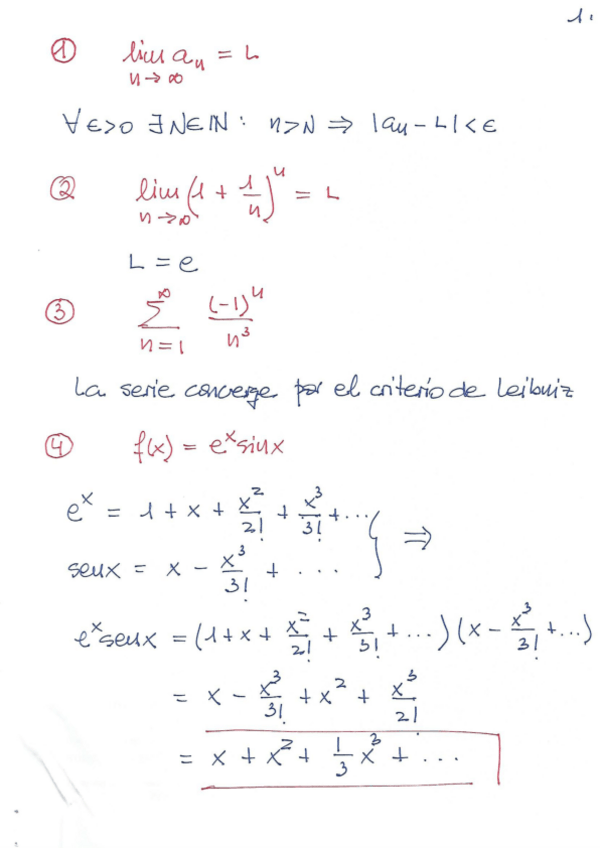 1.
① lim_{n→∞} a_n = L
∀ε>0 ∃N∈ℕ: n>N ⇒ |a_n - L|<ε
② lim_{n→∞} (1 + 1/n)^n = L
L = e
③ ∑_{n=1}^{∞} (-1)^n / n^3
La serie converge por el criterio de Leibniz
④ f(x) = e^x sinx
e^x = 1 + x + x^2/2! + x^3/3! + ... } ⇒
senx = x - x^3/3! + ...
e^x senx = (1+x+ x^2/2! + x^3/3! + ...)(x - x^3/3! + ...)
= x - x^3/3! + x^2 + x^3/2!
= x + x^2 + 1/3 x^3 + ...